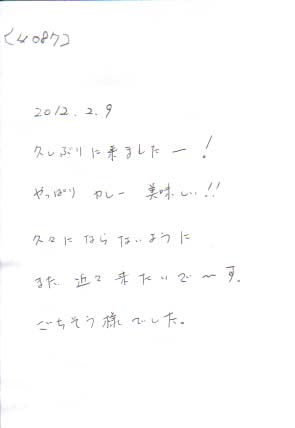 〔4087〕
2012.2.9
久しぶりに来ましたー!
やっぱり カレー 美味しい!!
久々にならないように
また 近々 来たいで〜す.
ごちそう様でした。